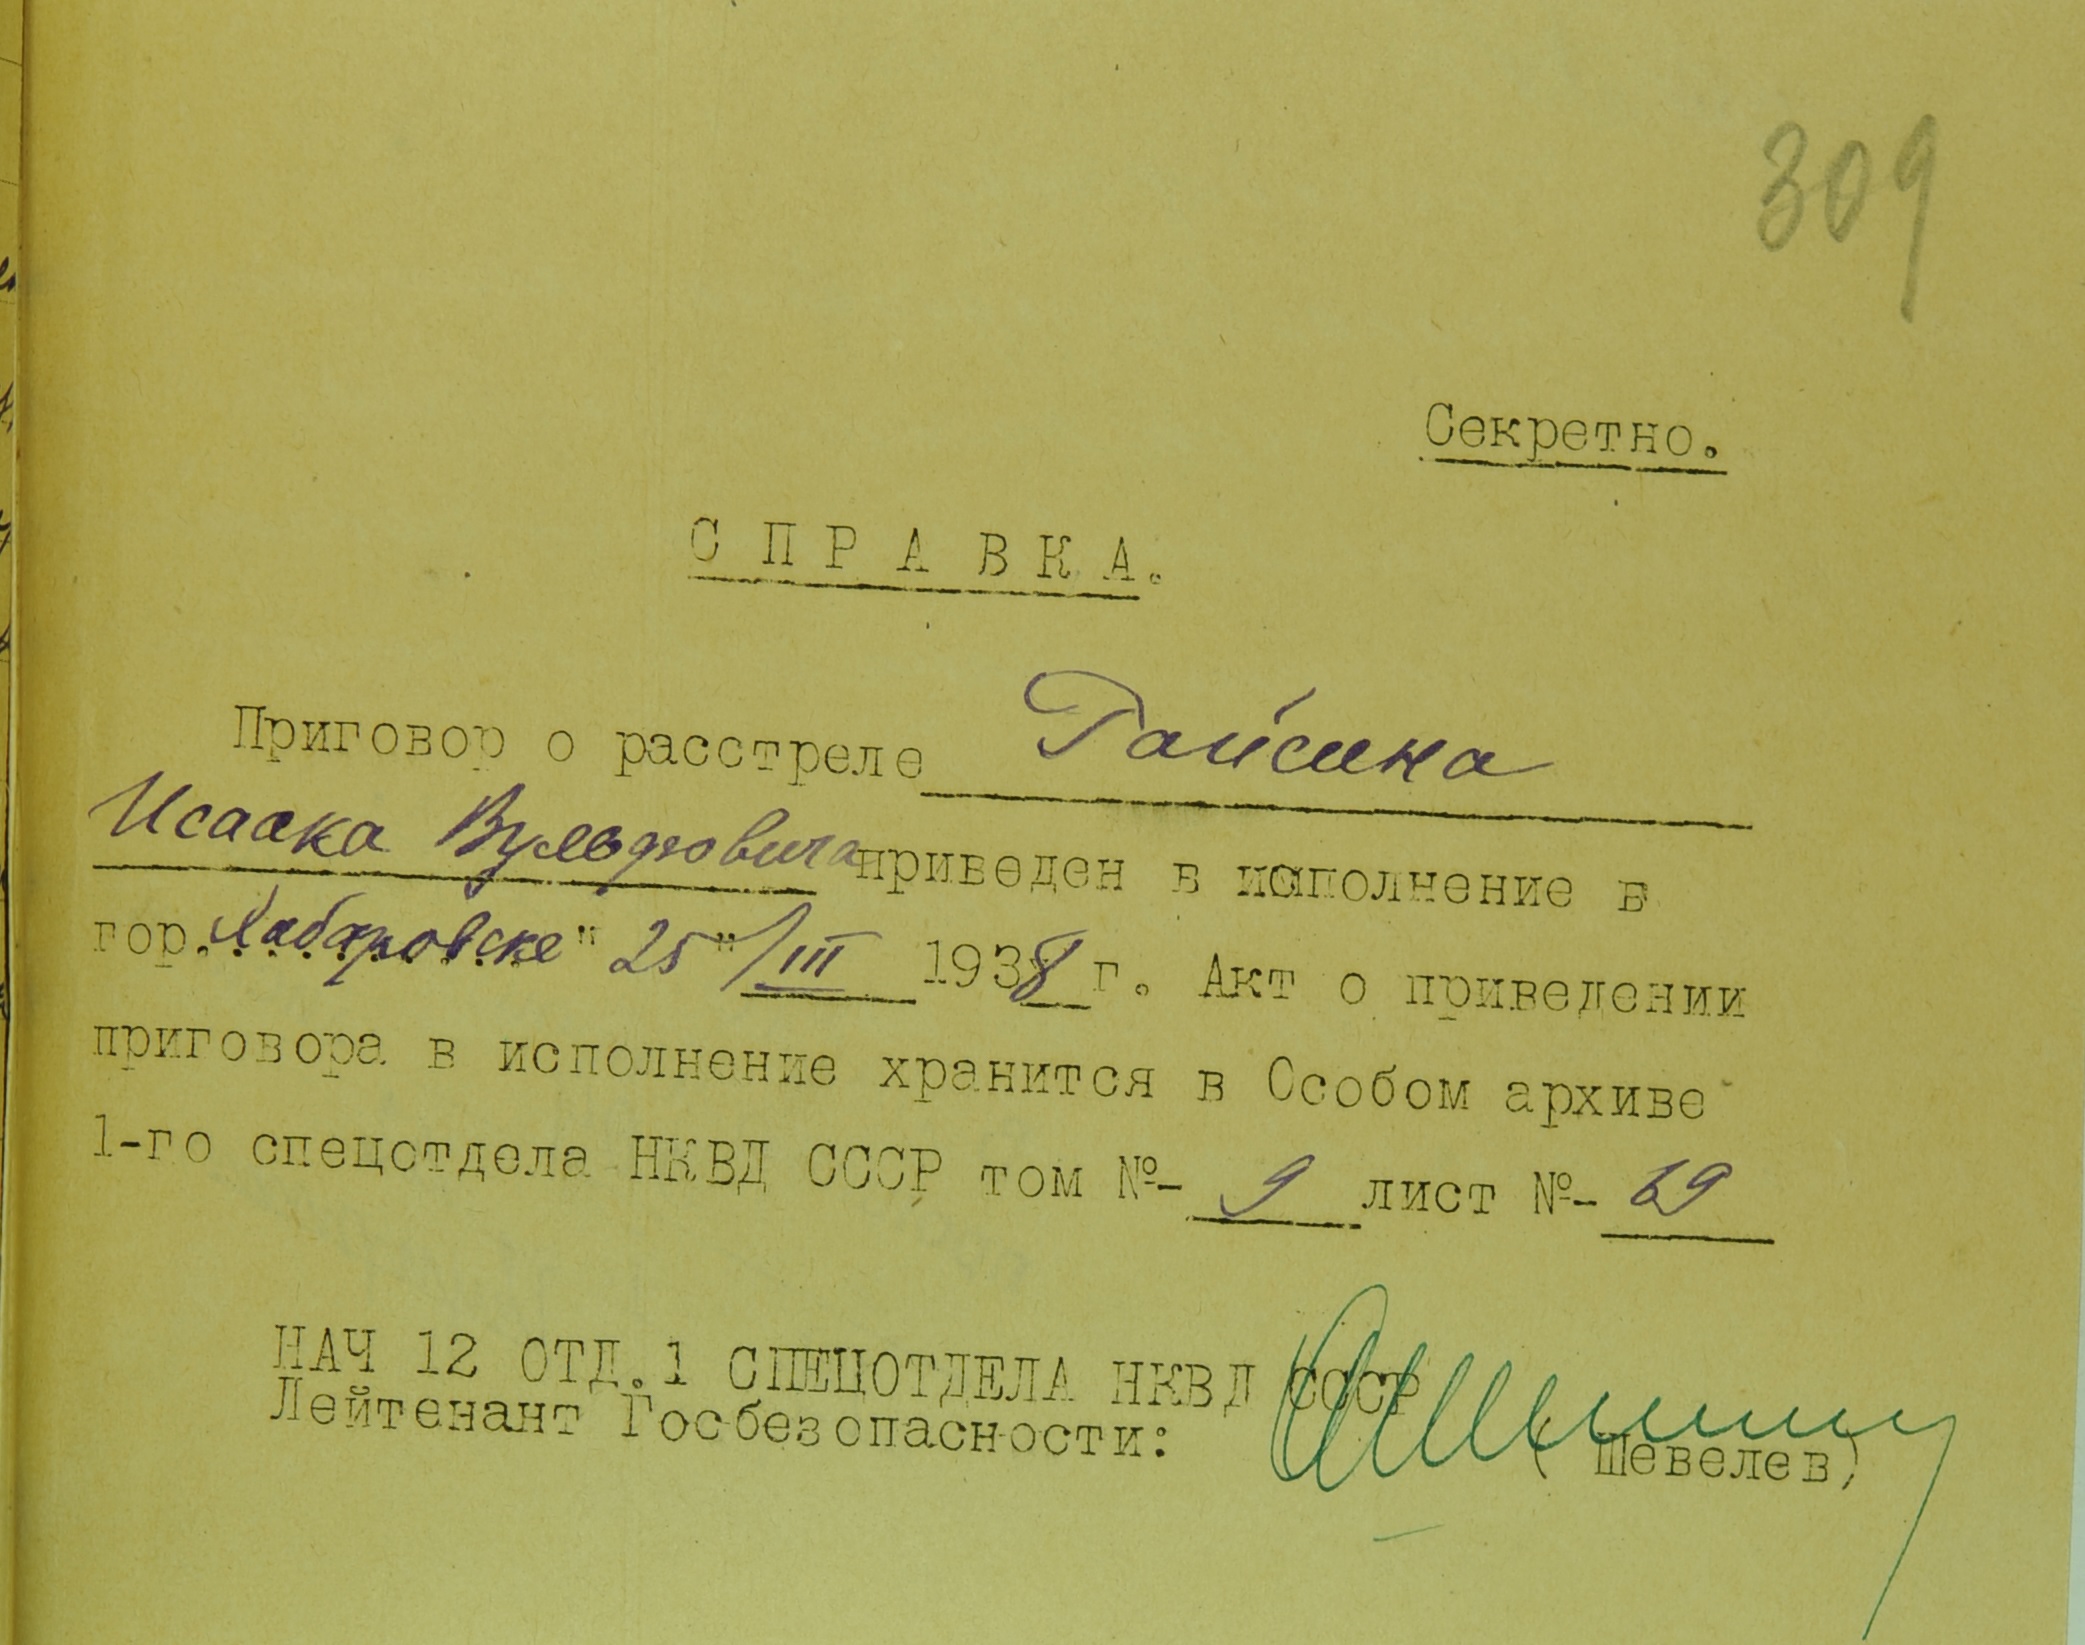 309
Секретно.
С П Р А В К А.
Приговор о расстреле Гайсина
Исаака Вульфовича приведен в исполнение в
гор. Хабаровске "25"/III 1938 г. Акт о приведении
приговора в исполнение хранится в Особом архиве
1-го спецотдела НКВД СССР том №- 9 лист №- 69
НАЧ 12 ОТД.1 СПЕЦОТДЕЛА НКВД СССР
Лейтенант Госбезопасности: ( Шевелев)